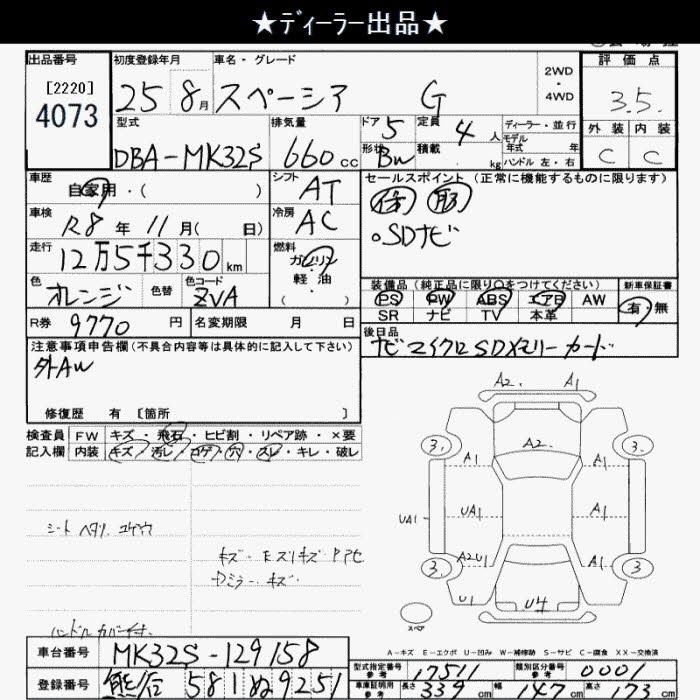 ★ディーラー出品★
出品番号 初度登録年月 車名・グレード 2WD・4WD 評価点
[2220] 4073 25 8月 スペーシア G 3.5.
型式 排気量 ドア 5 定員 4人 ディーラー・並行 外装 内装
DBA-MK32S 660cc 形状 Bw 積載 kg モデル年式 年 ハンドル 左・右 C C
車歴 自家用・( ) シフト AT セールスポイント(正常に機能するものに限ります)
車検 R8年11月( 日) 冷房 AC
走行 12万5千330km 燃料 ガソリン・軽油 ( ) ○SDナビ
色 オレンジ 色替 色コード ZVA 装備品(純正品に限り○をつけてください) 新車保証書
PS PW ABS エアB AW 有・無
R券 9770円 名変期限 月 日 SR ナビ TV 本革
注意事項申告欄(不具合内容等は具体的に記入して下さい) 後日品
外AW ナビマイクロSDメモリーカード
修復歴 有 [箇所 ]
検査員 FW キズ・飛石・ヒビ割・リペア跡・×要
記入欄 内装 キズ・汚レ・コゲ・穴・スレ・キレ・破レ
A2. A1
3. A2. 3.
A1 A1
UA1 UA1 A1
A2U1 A1
3. 3
U1 U4
スペア
シート ヘタリ
キズ
ハンドルカバー
A-キズ E-エクボ U-凹み W-補修跡 S-サビ C-腐食 XX-交換済
車台番号 MK32S-129158
型式指定番号 参考 17511 類別区分番号 参考 0001
登録番号 熊谷 581 ぬ 9251
車庫証明用 参考 長さ 339cm 幅 147cm 高さ 173cm